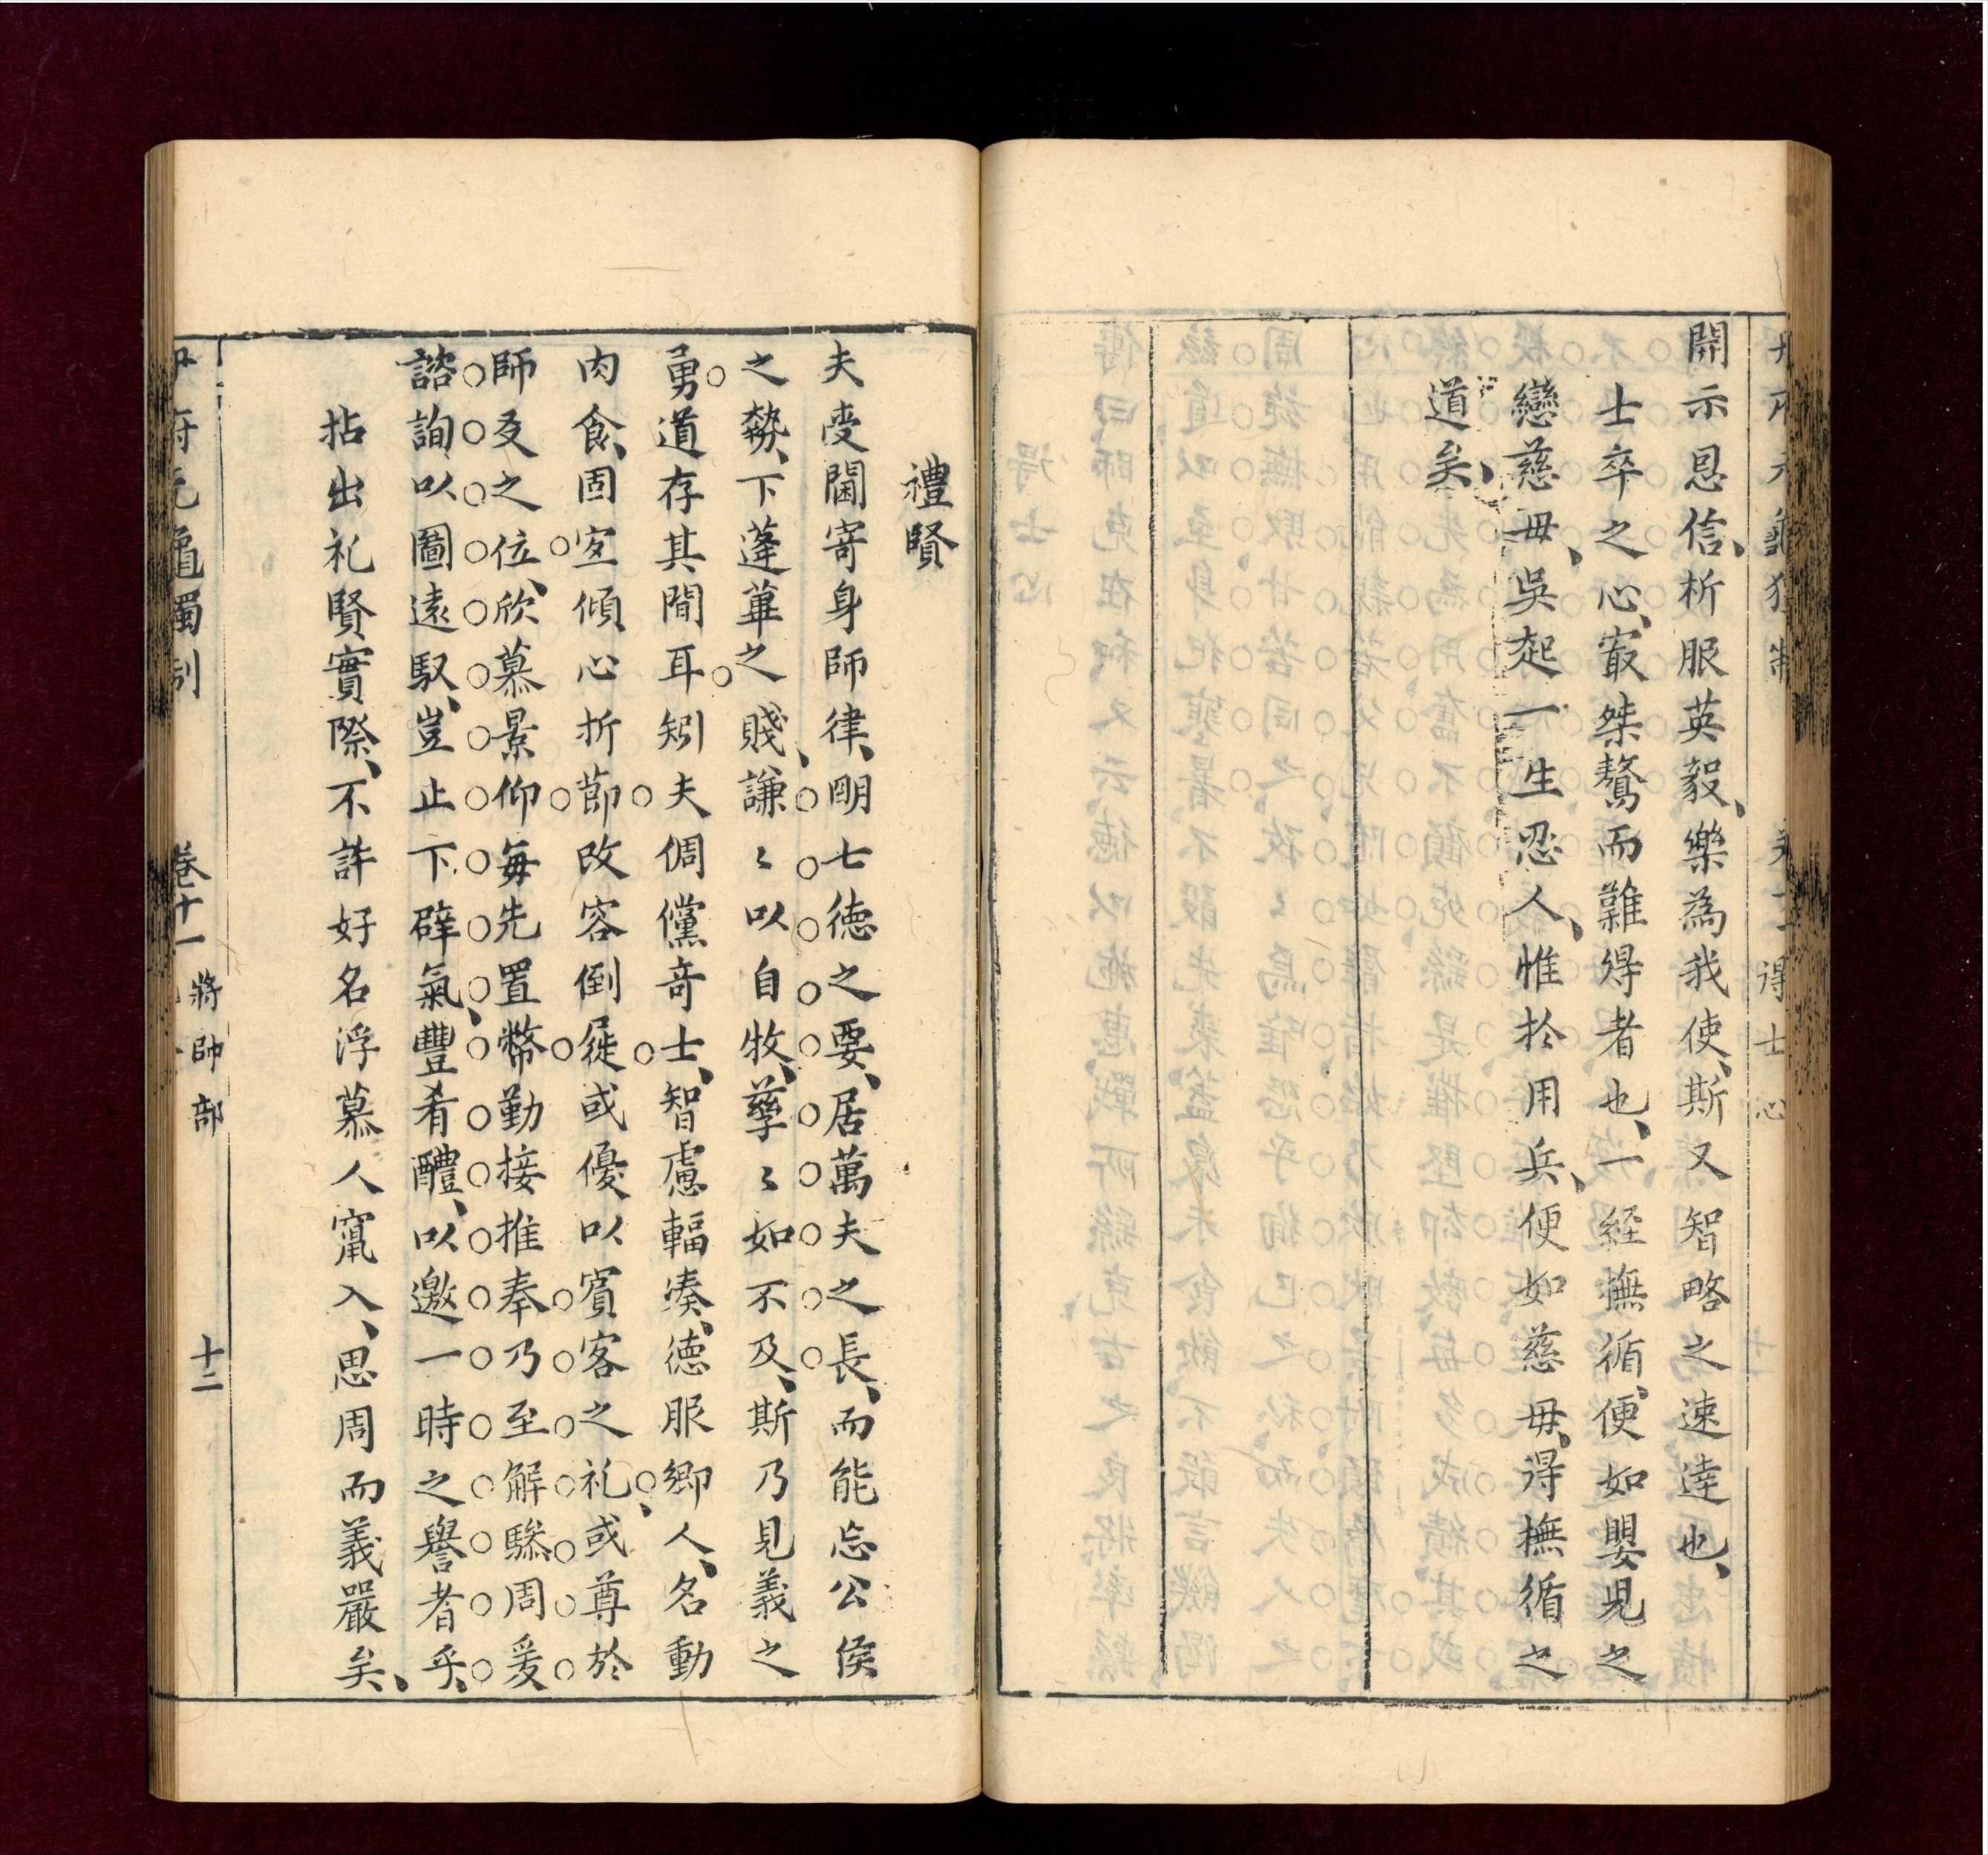 開示恩信、析服英毅、樂為我使、斯又智略之速逹也、
士卒之心、㝡桀驁而難得者也、一經撫循、便如嬰児之
戀慈毋、吳起一生忍人、惟扵用兵、便如慈毋、得撫循之
道矣、
得士心
禮賢
夫受閫寄身師律、明七德之要、居萬夫之長、而能忘公侯
之勢、下蓬蓽之賤、謙〻以自牧、孳〻如不及、斯乃見義之
勇道存其間耳矧夫倜儻竒士、智慮輻湊、德服鄉人、名動
肉食、固冝傾心折節改容倒屣或優以賓客之礼、或尊於
師友之位、欣慕景仰每先置幣勤接推奉乃至解驂周爰
諮詢以圖遠馭、豈止下辟氣、豐肴醴、以邀一時之譽者乎、
拈出礼賢實際、不許好名浮慕人竄入、思周而義嚴矣、
卷十一 將帥部 十二